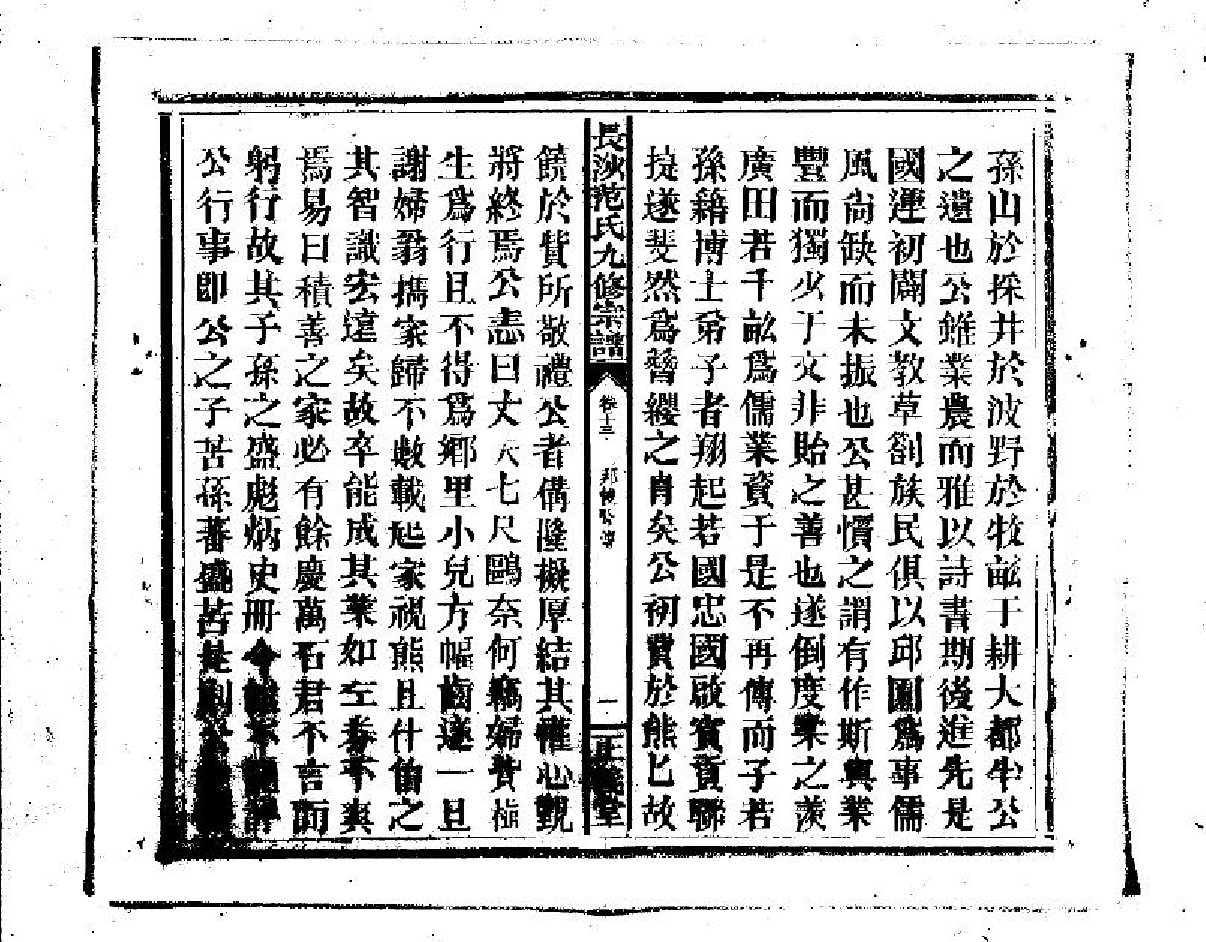 孫山於採井於波野於牧畝于耕大都半公
之遺也公雖業農而雅以詩書期後進先是
國運初闢文教草創族民俱以邱園爲事儒
風尙缺而未振也公甚惜之謂有作斯興業
豐而獨少于文非貽之善也遂倒度橐之羨
廣田若干畝爲儒業資于是不再傳而子若
孫籍博士弟子者翔起若國忠國啟賓賢聯
㨗遂斐然爲簪纓之胄矣公初贅於熊匕故
長沙范氏九修宗譜
卷十三
一
饒於貲所敬禮公者備隆擬厚結其懽心觀
將終焉公恚曰丈夫七尺鷗奈何竊婦貲
生爲行且不得爲鄕里小兒方幅齒遂一旦
謝婦翁攜家歸不數載起家視熊且什伯之
其智識宏遠矣故卒能成其業如左券不爽
焉易曰積善之家必有餘慶萬石君不言而
躬行故其子孫之盛彪炳史冊今
公行事即公之子若孫蕃盛若是